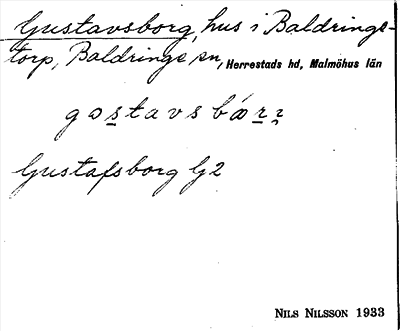 Gustavsborg, hus i Baldrings-
torp, Baldringe sn, Herrestads hd, Malmöhus län
gostavsbórr
Gustafsborg G2
NILS NILSSON 1933